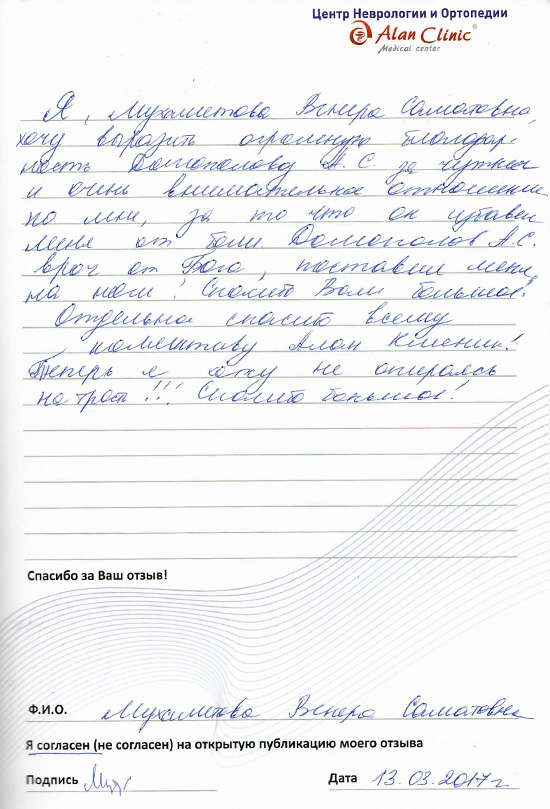 Центр Неврологии и Ортопедии
Alan Clinic®
Medical center
Я, Мухаметова Венера Саматовна,
хочу выразить огромную благодар-
ность Домополову А. С. за чуткое
и очень внимательное отношение
ко мне, за то что он избавил
меня от боли Домополов А.С.
врач от Бога, поставил меня
на ноги! Спасибо Вам большое!
Отдельно спасибо всему
коллективу Алан Клиник!
Теперь я хожу не опираясь
на трость!!! Спасибо большое!
Спасибо за Ваш отзыв!
Ф.И.О. Мухаметова Венера Саматовна
Я согласен (не согласен) на открытую публикацию моего отзыва
Подпись Мух Дата 13.03.2017 г